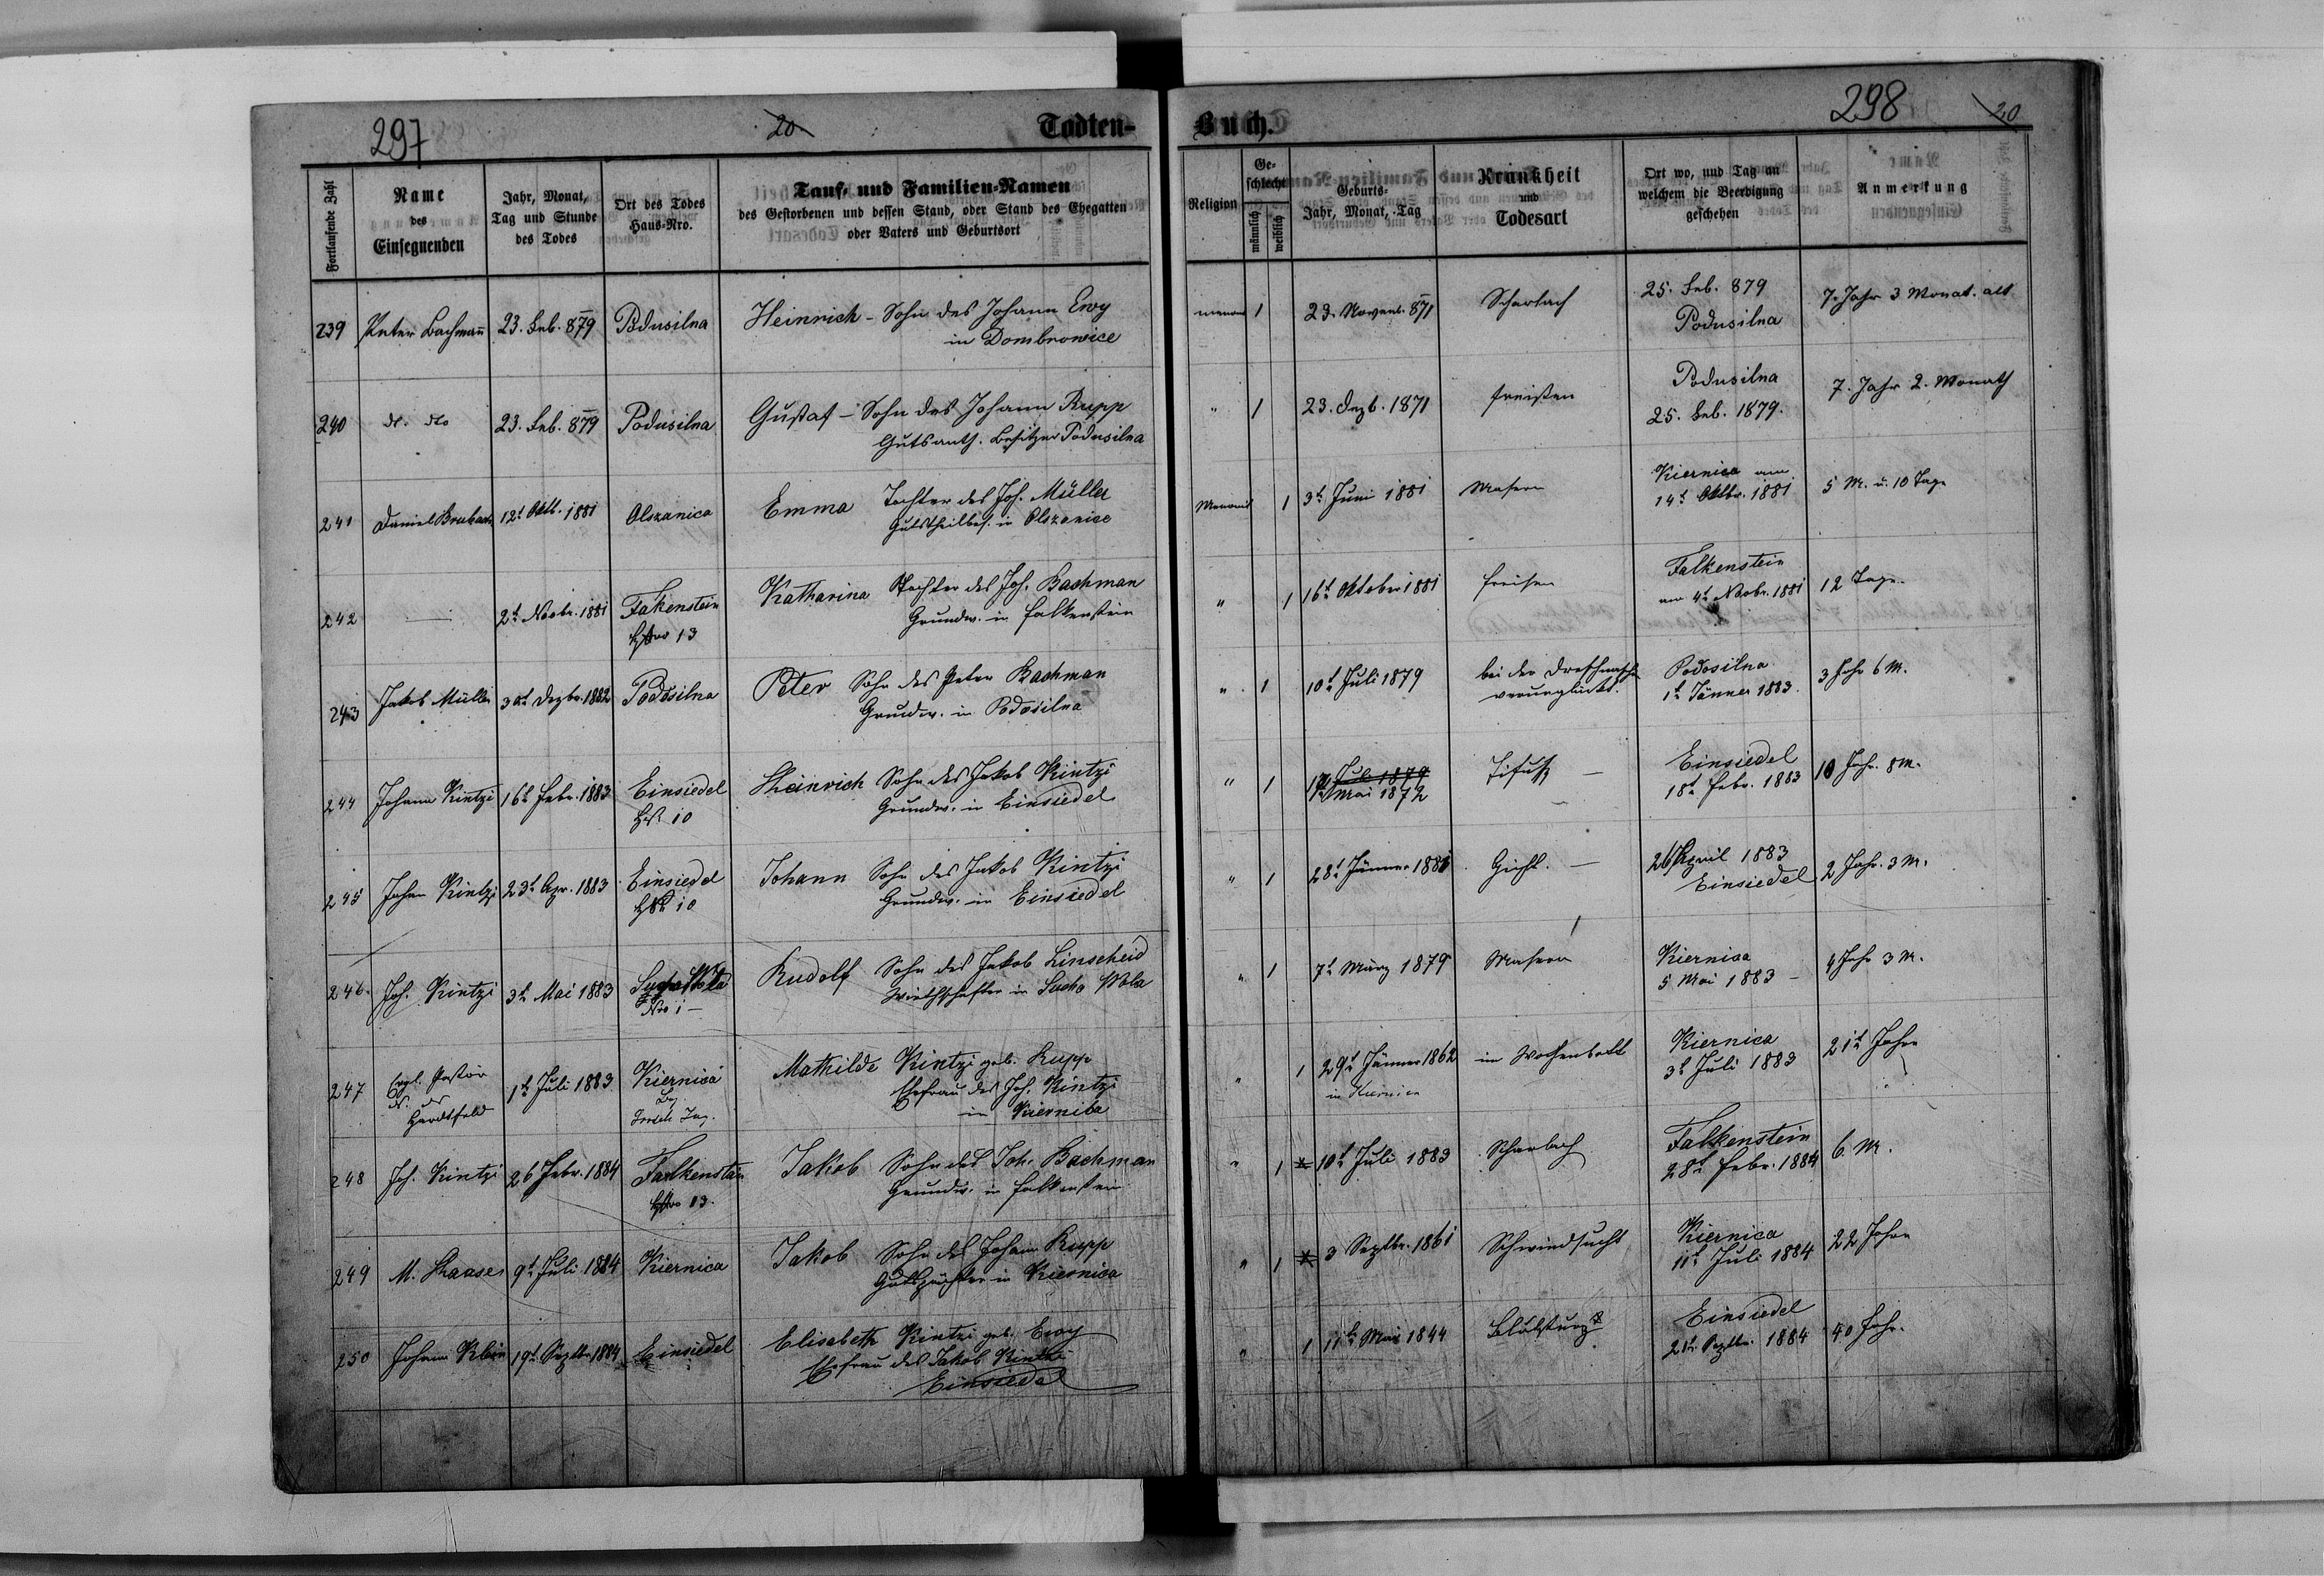 297
20
Todten-
Buch.
298
20
Fortlaufende Zahl
Name
des
Einsegnenden
Jahr, Monat,
Tag und Stunde
des Todes
Ort des Todes
Haus-Nro.
Tauf- und Familien-Namen
des Gestorbenen und dessen Stand, oder Stand des Ehegatten
oder Vaters und Geburtsort
Religion
Ge-
schlecht
männlich
weiblich
Geburts-
Jahr, Monat, Tag
Krankheit
und
Todesart
Ort wo, und Tag an
welchem die Beerdigung
geschehen
Anmerkung
239 Peter Bachmann 23. Feb. 879 Podusilna Heinrich - Sohn des Johann Ewy
in Dombrowice
1 23. Novemb. 871 Scharlach 25. Feb. 879
Podusilna
7. Jahr 3 Monat. alt
240 do. do 23. Feb. 879 Podusilna Gustaf - Sohn des Johann Rupp
Gutsanth. Besitzer Podusilna
" 1 23. Dezb. 1871 freisen Podusilna
25. Feb. 1879.
7. Jahr 2. Monath
241 Daniel 12t Oktb. 1881 Olszanica Emma Tochter des Joh. Müller
Gutstheilbes. in Olszanice
Menonit 1 3t Juni 1881 Masern Kiernica am
14t Oktbr. 1881
5 M. u. 10 Tage
242 — 2t Novbr. 1881 Fakenstein
HsNro 13
Katharina Tochter des Joh. Bachman
Grundw. in Falkenstein
" 1 16t Oktober 1881 freisen Falkenstein
am 4t Novbr. 1881
12 Tage.
243 Jakob Müller 30t Dezbr. 1882 Podosilna Peter Sohn des Peter Bachman
Grundw. in Podosilna
" 1 10t Juli 1879 bei der Dreschmasche
verunglückt.
Podosilna
1t Jänner 1883.
3 Jahr 6 M.
244 Johann Kintzi 16t Febr. 1883 Einsiedel
10
Heinrich Sohn des Jakob Kintzi
Grundw. in Einsiedel
" 1 Juli 1879
Mai 1872
Tifuß — Einsiedel
18t Febr. 1883
10 Jahr. 8 M.
245 Johan Kintzi 23t Apr. 1883 Einsiedel
10
Johann Sohn des Jakob Kintzi
Grundw. in Einsiedel
" 1 28t Jänner 1881 Gicht. — 26 April 1883
Einsiedel
2 Jahr. 3 M.
246. Joh. Kintzi 3t Mai 1883 Sucha Wola
Nro 1 —
Rudolf Sohn des Jakob Linscheid
Wirthschafter in Sucha Wola
" 1 7t März 1879 Masern Kiernica
5 Mai 1883 —
4 Jahr 3 M.
247 Evgl. Pastor
Hardtfeld
1t Juli 1883 Kiernica
Mathilde Kintzi geb. Rupp
Ehefrau des Joh. Kintzi
in Kiernica
" 1 29t Jänner 1862
in Kiernica
im Wochenbett Kiernica
3t Juli 1883
21t Jahre
248 Joh. Kintzi 26 Febr. 1884 Falkenstein
HsNro 13.
Jakob Sohn des Joh. Bachman
Grundw. in Falkenstein
" 1 10t Juli 1883 Scharlach Falkenstein
28t Febr. 1884
6 M.
249 M. Haase 9t Juli 1884 Kiernica Jakob Sohn des Johann Rupp
Gutspächter in Kiernica
" 1 3 Septbr. 1861 Schwindsucht Kiernica
11t Juli 1884
22 Jahre
250 Johann Klein 19t Septbr 1884 Einsiedel Elisabeth Kintzi geb. Ewy
Ehefrau des Jakob Kintzi
Einsiedel
" 1 11t Mai 1844 Blutsturz Einsiedel
21t Septbr. 1884
40 Jahr.